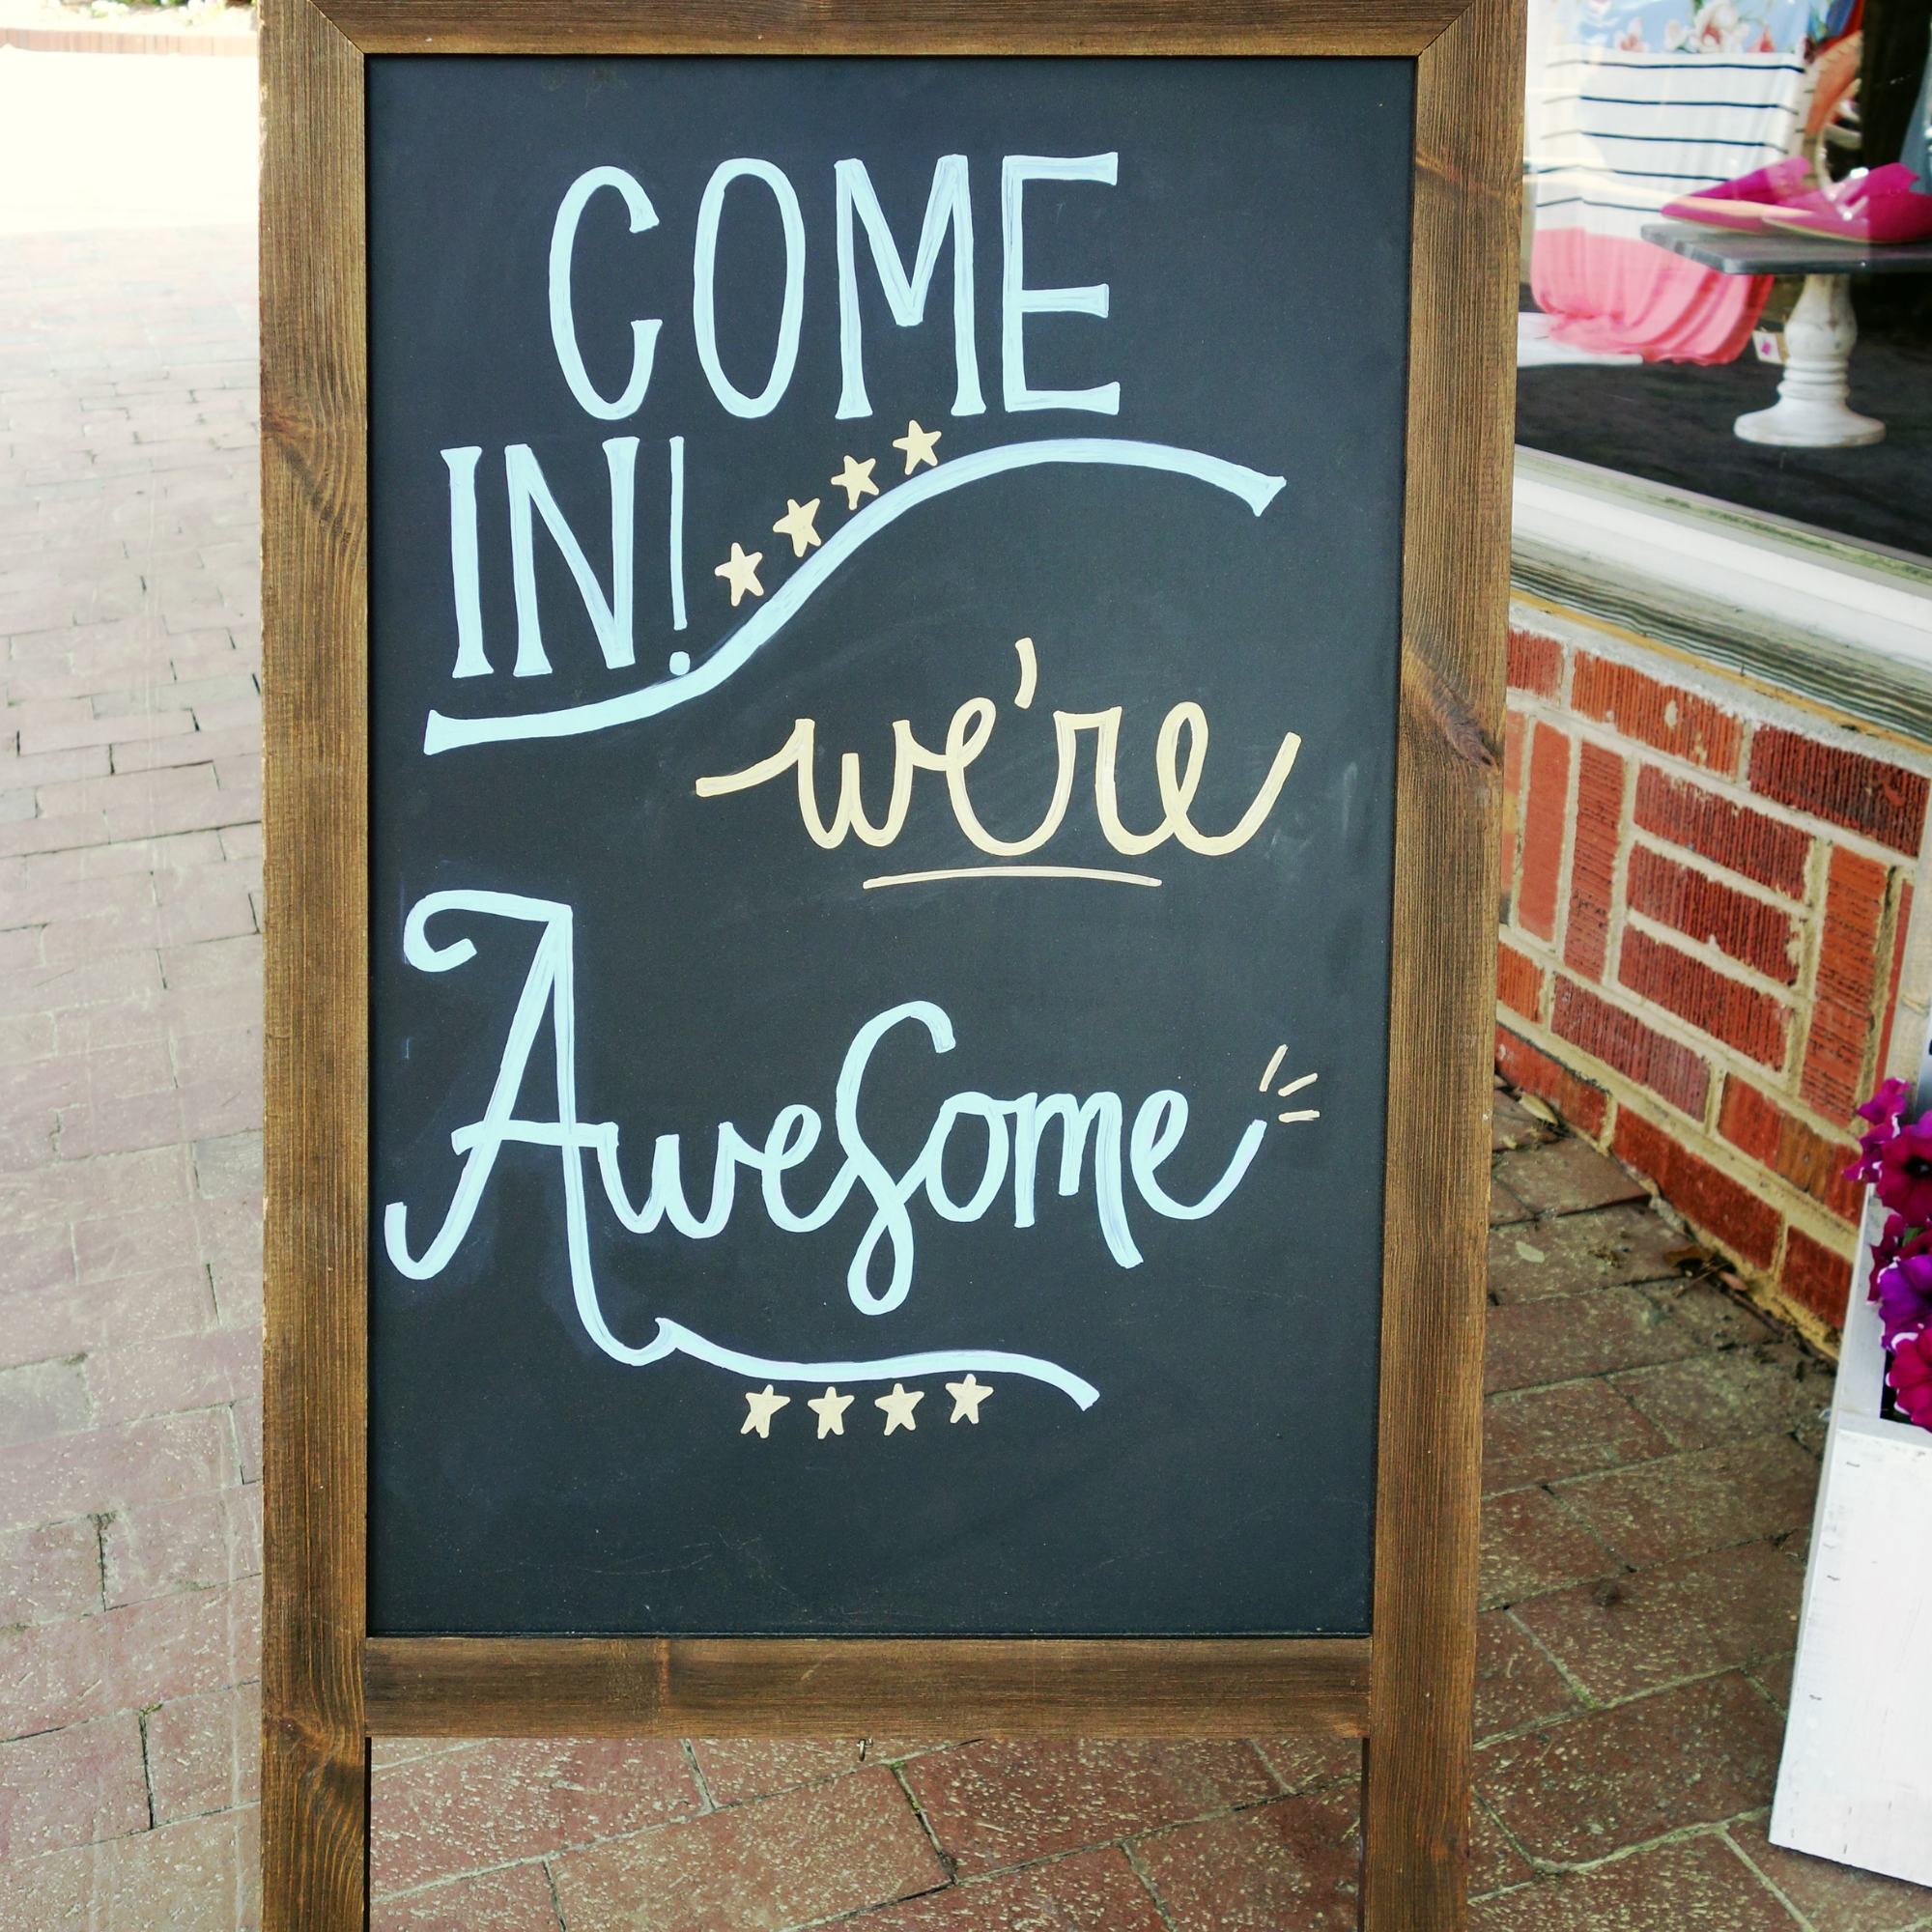 COME
IN!
we're
Awesome